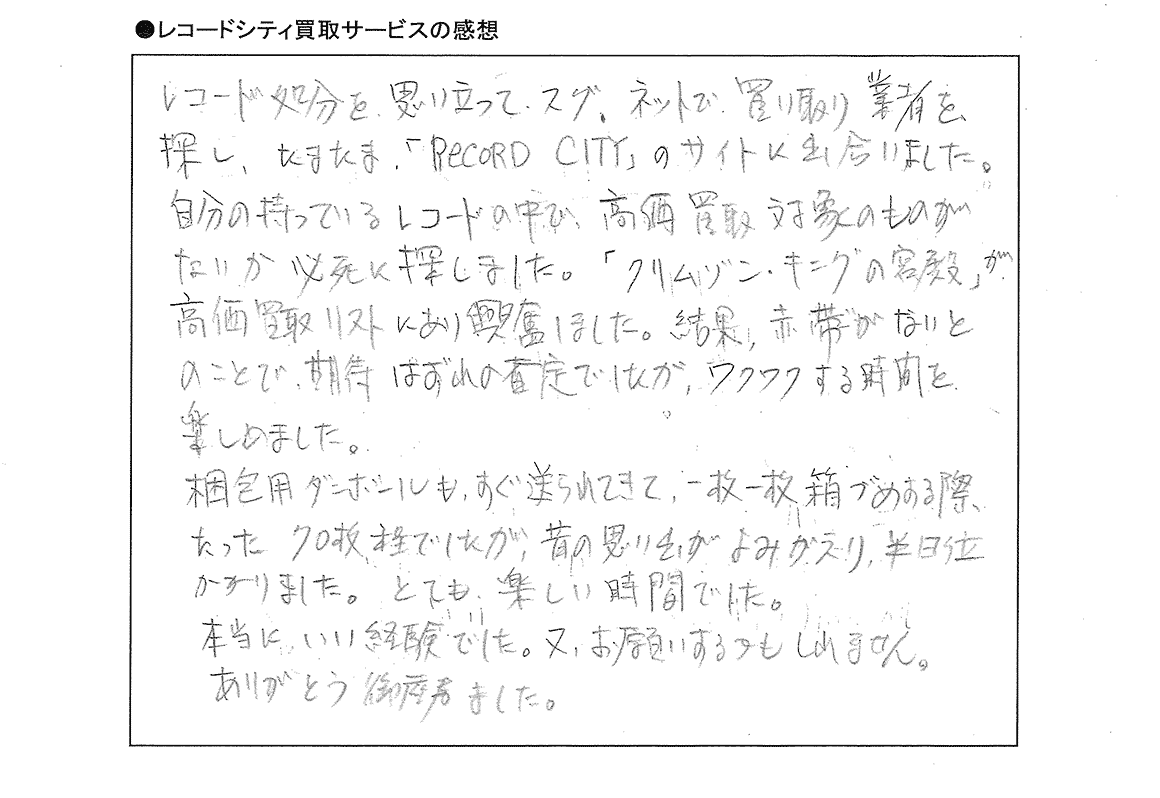 ●レコードシティ買取サービスの感想
レコード処分を思い立って、スグ、ネットで、買い取り業者を、
探し、たまたま、「RECORD CITY」のサイトに出合いました。
自分の持っているレコードの中で、高価買取対象のものが
ないか必死に探しました。「クリムゾン・キングの宮殿」が
高価買取リストにあり興奮しました。結果、赤帯がないと
のことで、期待はずれの査定でしたが、ワクワクする時間を、
楽しめました。
梱包用ダンボールも、すぐ送られてきて、一枚一枚箱づめする際、
たった70枚程でしたが、昔の思い出がよみがえり、半日位
かかりました。とても、楽しい時間でした。
本当に、いい経験でした。又、お願いするかもしれません。
ありがとう御座居ました。